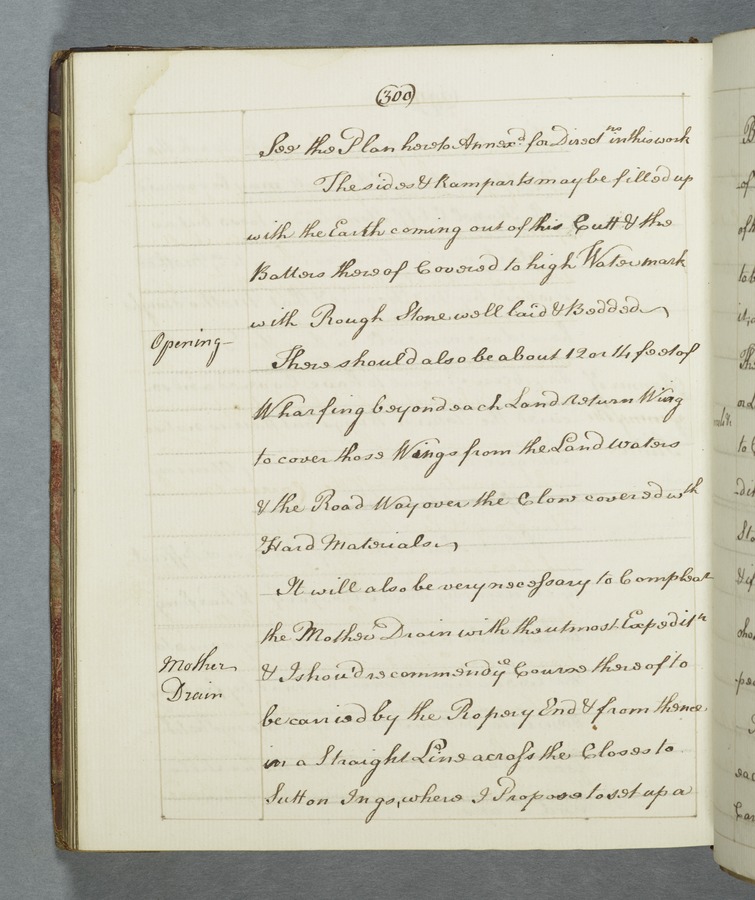 300
See the Plan hereto Annex'd for Direct.ns in this work
The sides & Ramparts may be filled up
with the Earth coming out of this Cutt & the
Batters thereof Covered to high Water mark
with Rough Stone well laid & Bedded
Opening
There should also be about 12 or 14 feet of
Wharfing beyond each Land return Wing
to cover those Wings from the Land waters
& the Road Way over the Clow covered wth
Hard Materials
It will also be very necessary to Compleat
the Mother Drain with the utmost Expeditn
Mother
Drain
& I shou'd recommend ye Course thereof to
be carried by the Ropery End & from thence
in a Straight Line across the Closes to
Sutton Ings, where I Propose to set up a